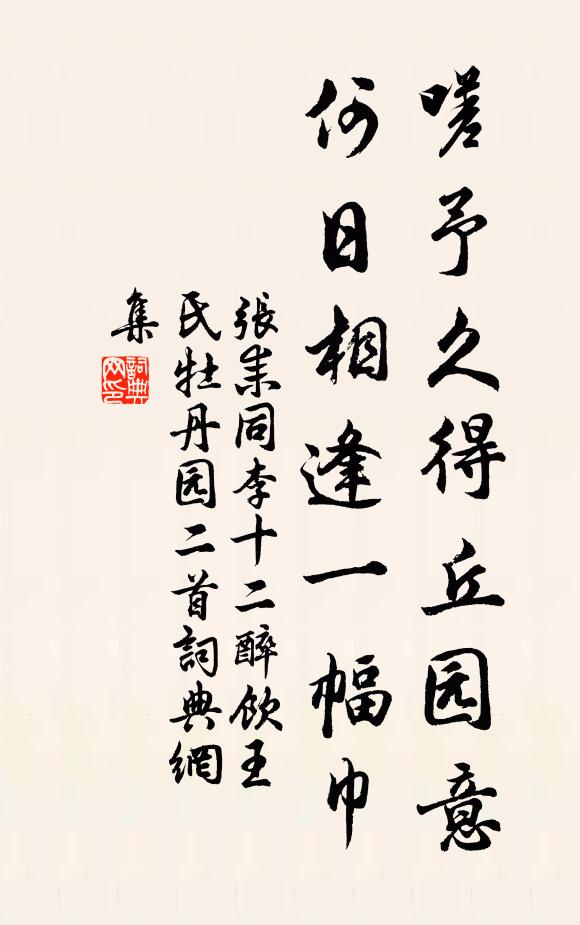 嗟予久得丘园意
何日相逢一幅巾
張耒同李十二醉飲王
氏牡丹园二首詞典網
集
詞典
网印